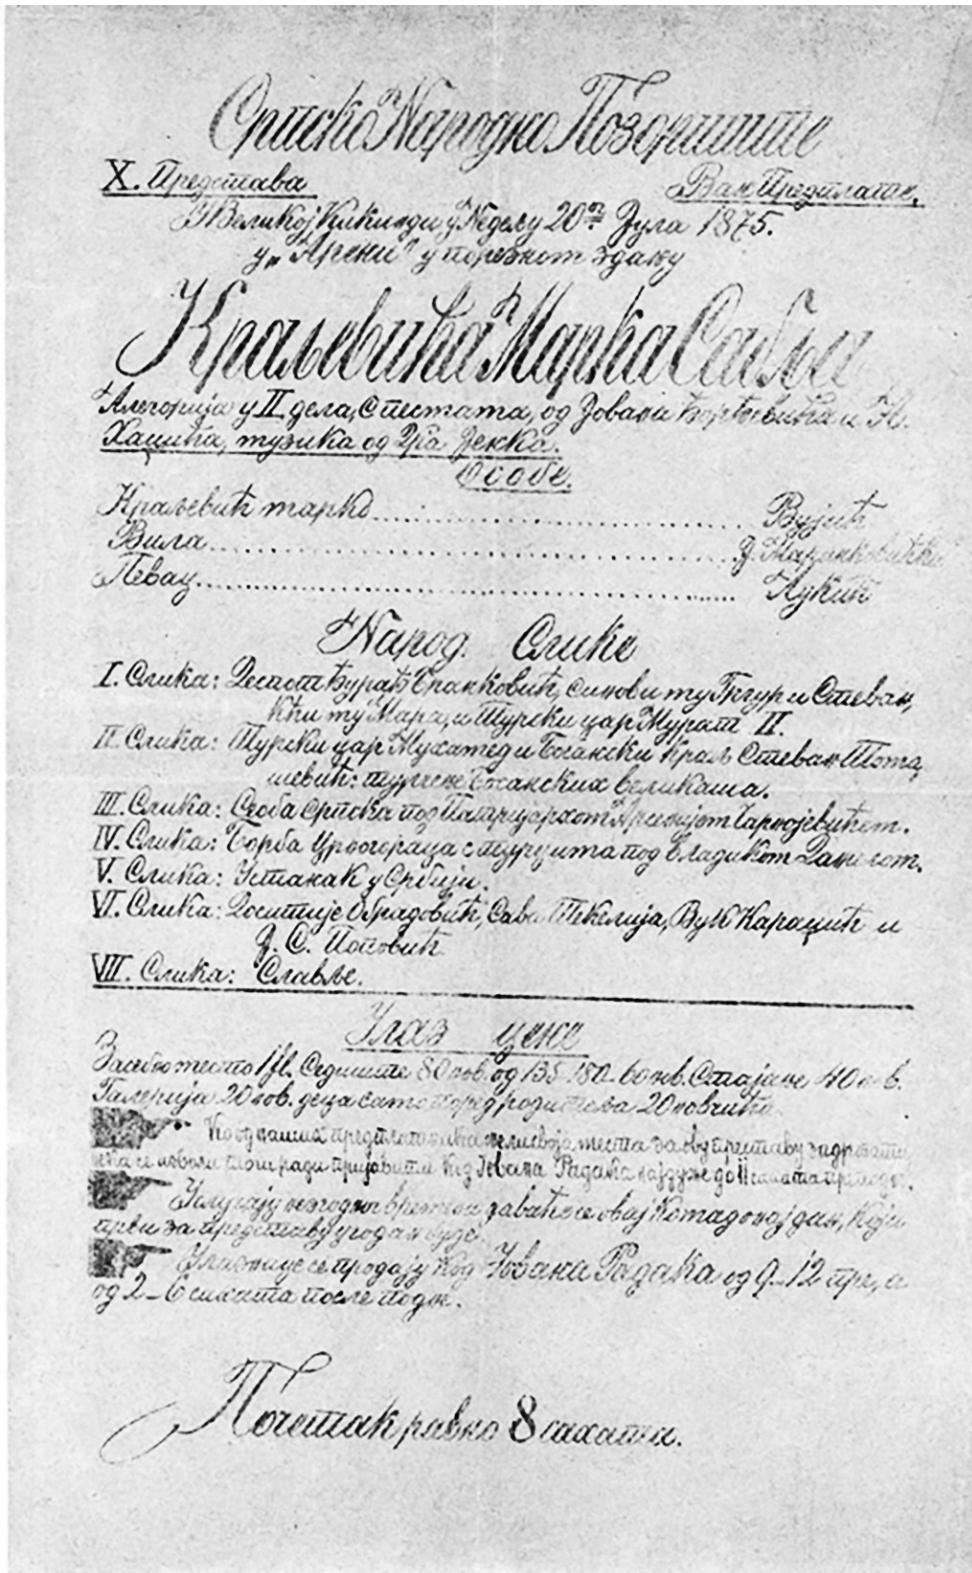 Српско Народно Позориште
X. Представа
Ван Предплате.
У Великој Кикинди, у Недељу 20ог Јула 1875.
у „Арени" у порезном здању
Краљевића Марка Сабља
Алегорија у II дела, с песмама, од Јована Ђорђевића и А.
Хаџића, музика од Гра Јекка.
Особе.
Краљевић Марко........................ Вујић
Вила........................ Ј. Маринковићка
Певац........................ Лукић
Народ. Слике
I. Слика: Деспот Ђурађ Бранковић, синови му Гргур и Стеван,
кћи му Мара, и Турски цар Мурат II.
II Слика: Турски цар Мухамед и Босански Краљ Стеван Тома,
шевић: мучење Босанских великаша.
III. Слика: Сеоба Српска под Патријархом Арсенијом Чарнојевићем.
IV. Слика: Борба Црногораца с турцима под Владиком Данилом.
V. Слика: Устанак у Србији.
VI. Слика: Доситије Обрадовић, Сава Текелија, Вук Караџић и
Ј. С. Поповић
VII. Слика: Славље.
Улаз цене
Засебно место 1 fl. Седиште 80 нов. од 135-180-60 нов. Стајање 40 нов.
Галерија 20 нов. деца само поред родитеља 20 новчића.
Кобу наших предплатника желио своја места за ову преставу задржати
нека се изволи тога ради пријавити код Јована Радака најдуже до 11 сахата пре подне.
У случају незгодног времена даваће се овај Комад онај дан, који
први за представу угодан буде.
Улазнице се продају код Јована Радака од 9-12 пре, а
од 2-6 сахата после подне.
Почетак равно 8 сахата.